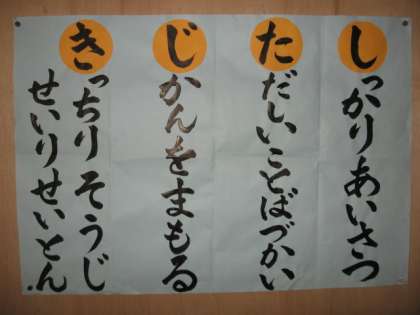 しっかりあいさつ
ただしいことばづかい
じかんをまもる
きっちりそうじ
せいりせいとん